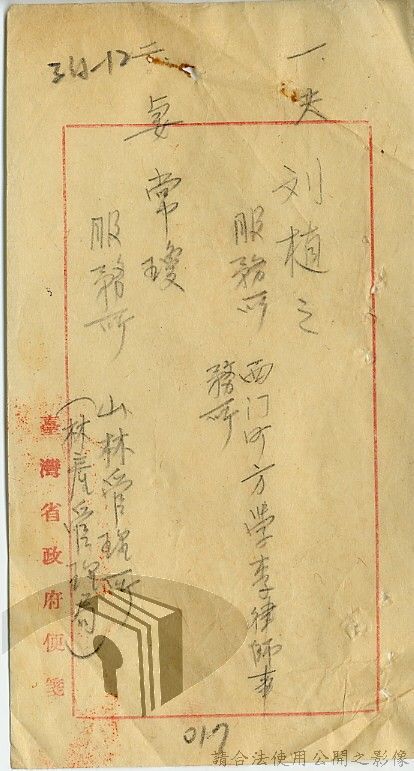 一、夫 刘植之
服務所 西门町方學李律師事
務所
二、妻 常瓊
服務所 山林管理所
(林產管理局)
臺灣省政府便箋
34-12
017
請合法使用公開之影像